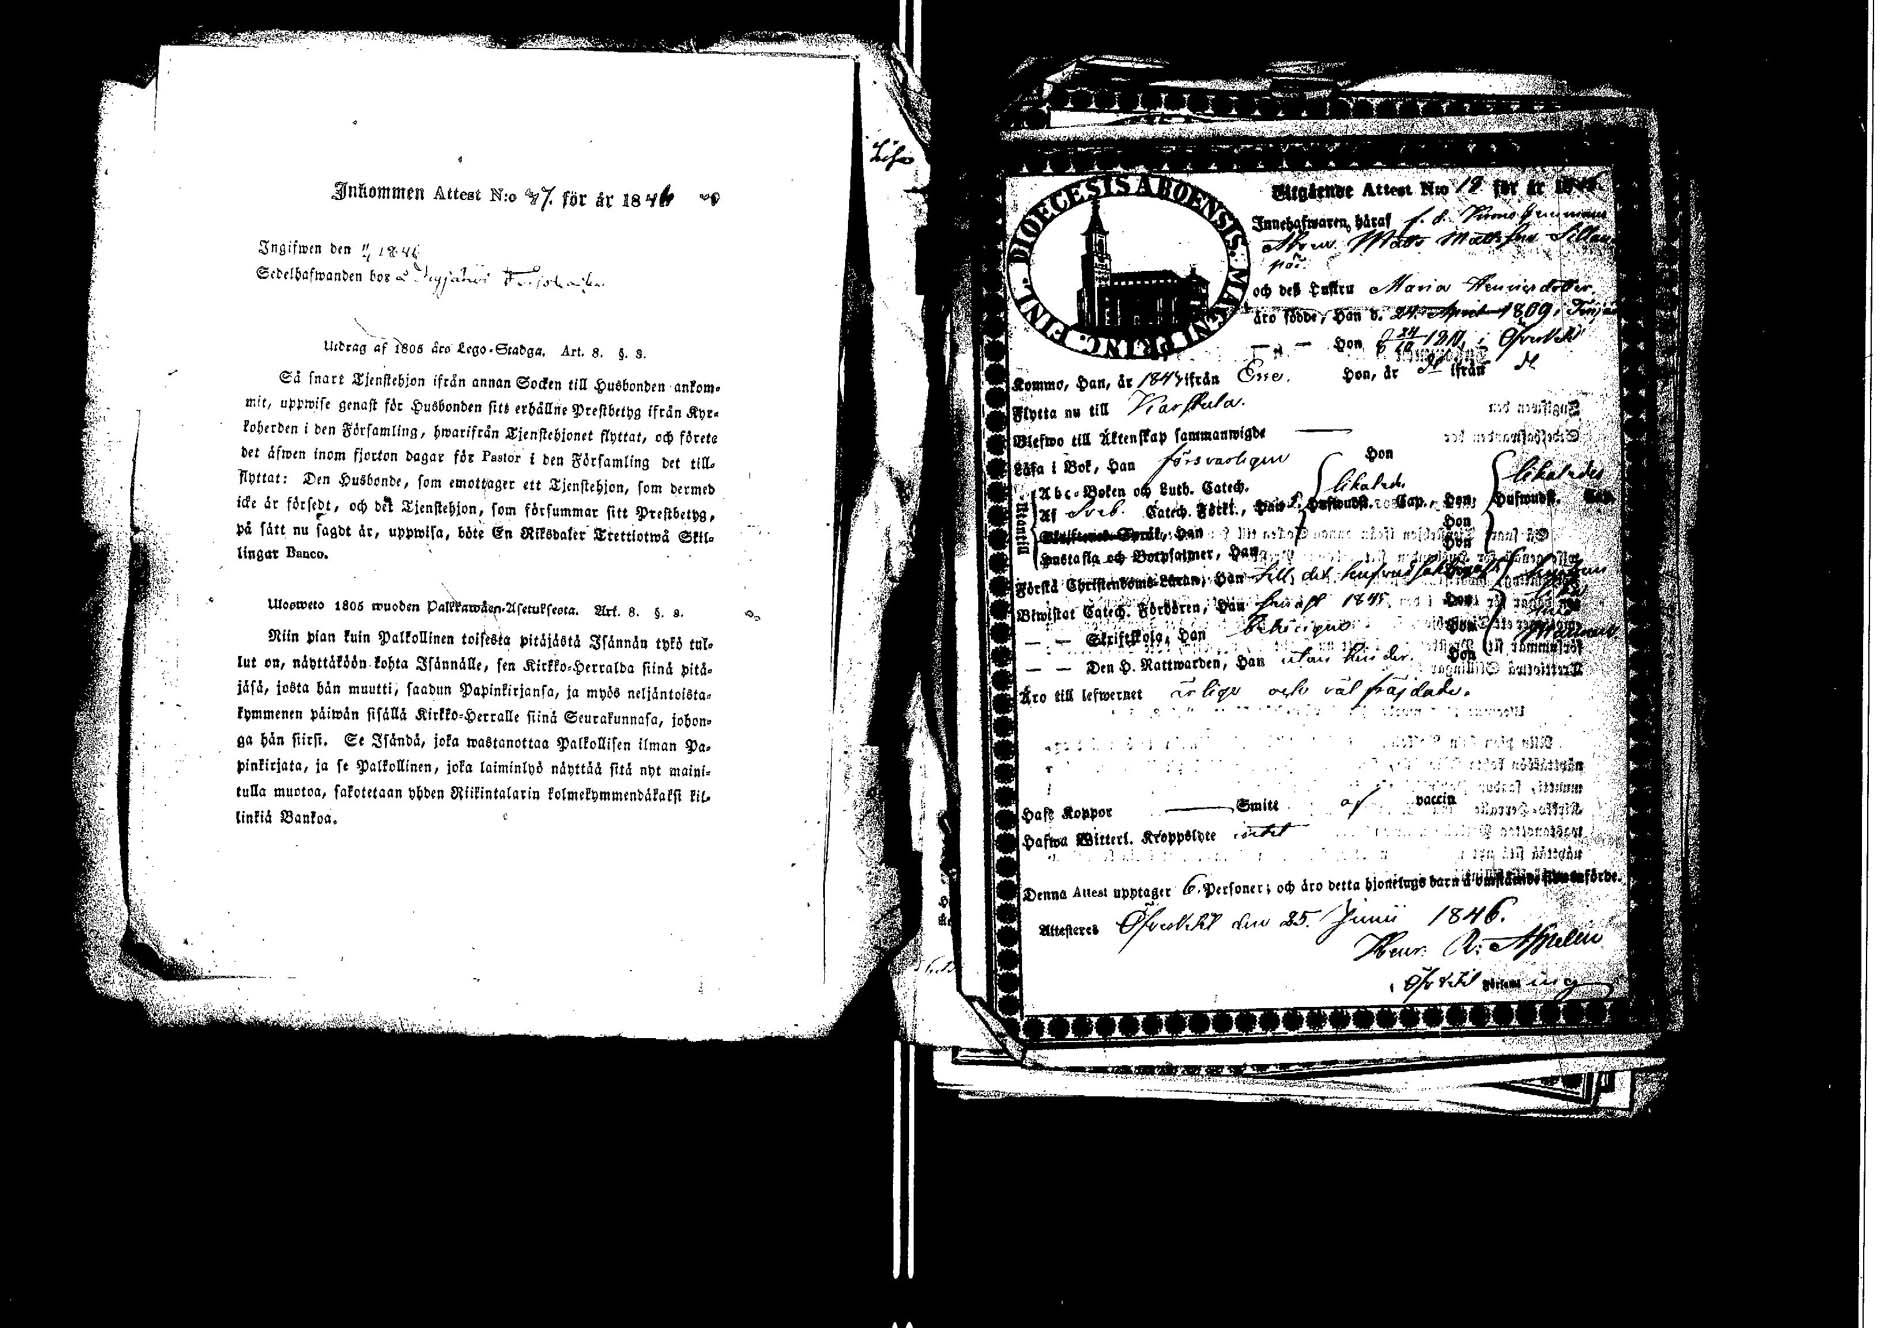 Inkommen Attest N:o 87. för år 1846
Ingifwen den 11/7 1846
Sedelhafwanden bor
Utdrag af 1805 års Lego-Stadga. Art. 8. §. 8.
Så snart Tjenstehjon ifrån annan Socken till Husbonden ankom-
mit, uppwise genast för Husbonden sitt erhållne Prestbetyg ifrån Kyr-
koherden i den Församling, hwarifrån Tjenstehjonet flyttat, och förete
det äfwen inom fjorton dagar för Pastor i den Församling det till-
flyttat: Den Husbonde, som emottager ett Tjenstehjon, som dermed
icke är försedt, och det Tjenstehjon, som försummar sitt Prestbetyg,
på sätt nu sagdt är, uppwisa, böte En Riksdaler Trettiotwå Skil-
lingar Banco.
Ulosweto 1805 wuoden Palkkawäen-Asetuksesta. Art. 8. §. 8.
Niin pian kuin Palkollinen toisesta pitäjästä Isännän tykö tul-
lut on, näyttäköön kohta Isännälle, sen Kirkko-Herralda siinä pitä-
jäsä, josta hän muutti, saadun Papinkirjansa, ja myös neljäntoista-
kymmenen päiwän sisällä Kirkko-Herralle siinä Seurakunnasa, johon-
ga hän siirsi. Se Isändä, joka wastanottaa Palkollisen ilman Pa-
pinkirjata, ja se Palkollinen, joka laiminlyö näyttää sitä nyt maini-
tulla muotoa, sakotetaan yhden Riikintalarin kolmekymmendäkaksi kil-
linkiä Bankoa.
DIOECESIS ABOENSIS. MAGNI PRINC. FINL.
Utgående Attest N:o 12 för år 1846.
Innehafwaren, häraf f. d.
Matts Mattsson
och deß Hustru Maria Henriksdotter,
äro födde, Han d. 24 April 1809 i
— „ — Hon 24/10 1811, i Öfvervetil
Kommo, Han, år 1843 ifrån Esse. Hon, år d:o ifrån d:o
Flytta nu till Karstula.
Blefwo till Äktenskap sammanwigde —
Läsa i Bok, Han försvarligen Hon likaledes
Utantill
Abc-Boken och Luth. Catech. likaledes
Af Sveb. Catech. Förkl., Han Hufwudst. Cap., Hon, Hufwudst. Cap.
Skriftenes Språk, Han Hon
Hustafla och Botpsalmer, Han Hon
Förstå Christendoms-Läran, Han till det hufvudsakligaste Hon
Biwistat Catech. Förhören, Han senast 1845 Hon
— — Skriftskola, Han behörigen Hon
— — Den H. Nattwarden, Han utan hinder. Hon
Äro till lefwernet ärlige och väl fräjdade.
Haft Koppor — Smitt af vaccin
Hafwa Witterl. Kroppslyte intet
Denna Attest upptager 6 Personer; och äro detta hjonelags barn å omstående sida införde.
Attesteres Öfvervetil den 25. Junii 1846.
Henr. R. Aspelin
i Öfvervetil Församling